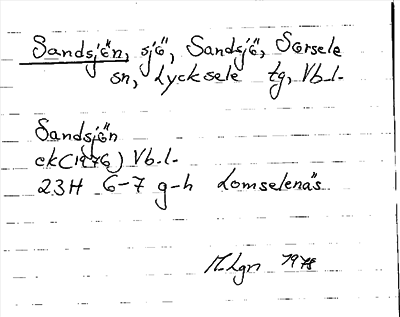 Sandsjön, sjö, Sandsjö, Sorsele
sn, Lycksele tg, Vb.l.
Sandsjön
ek(1976) Vb.l.
23H 6-7 g-h Lomselenäs
M.Lgn 1978